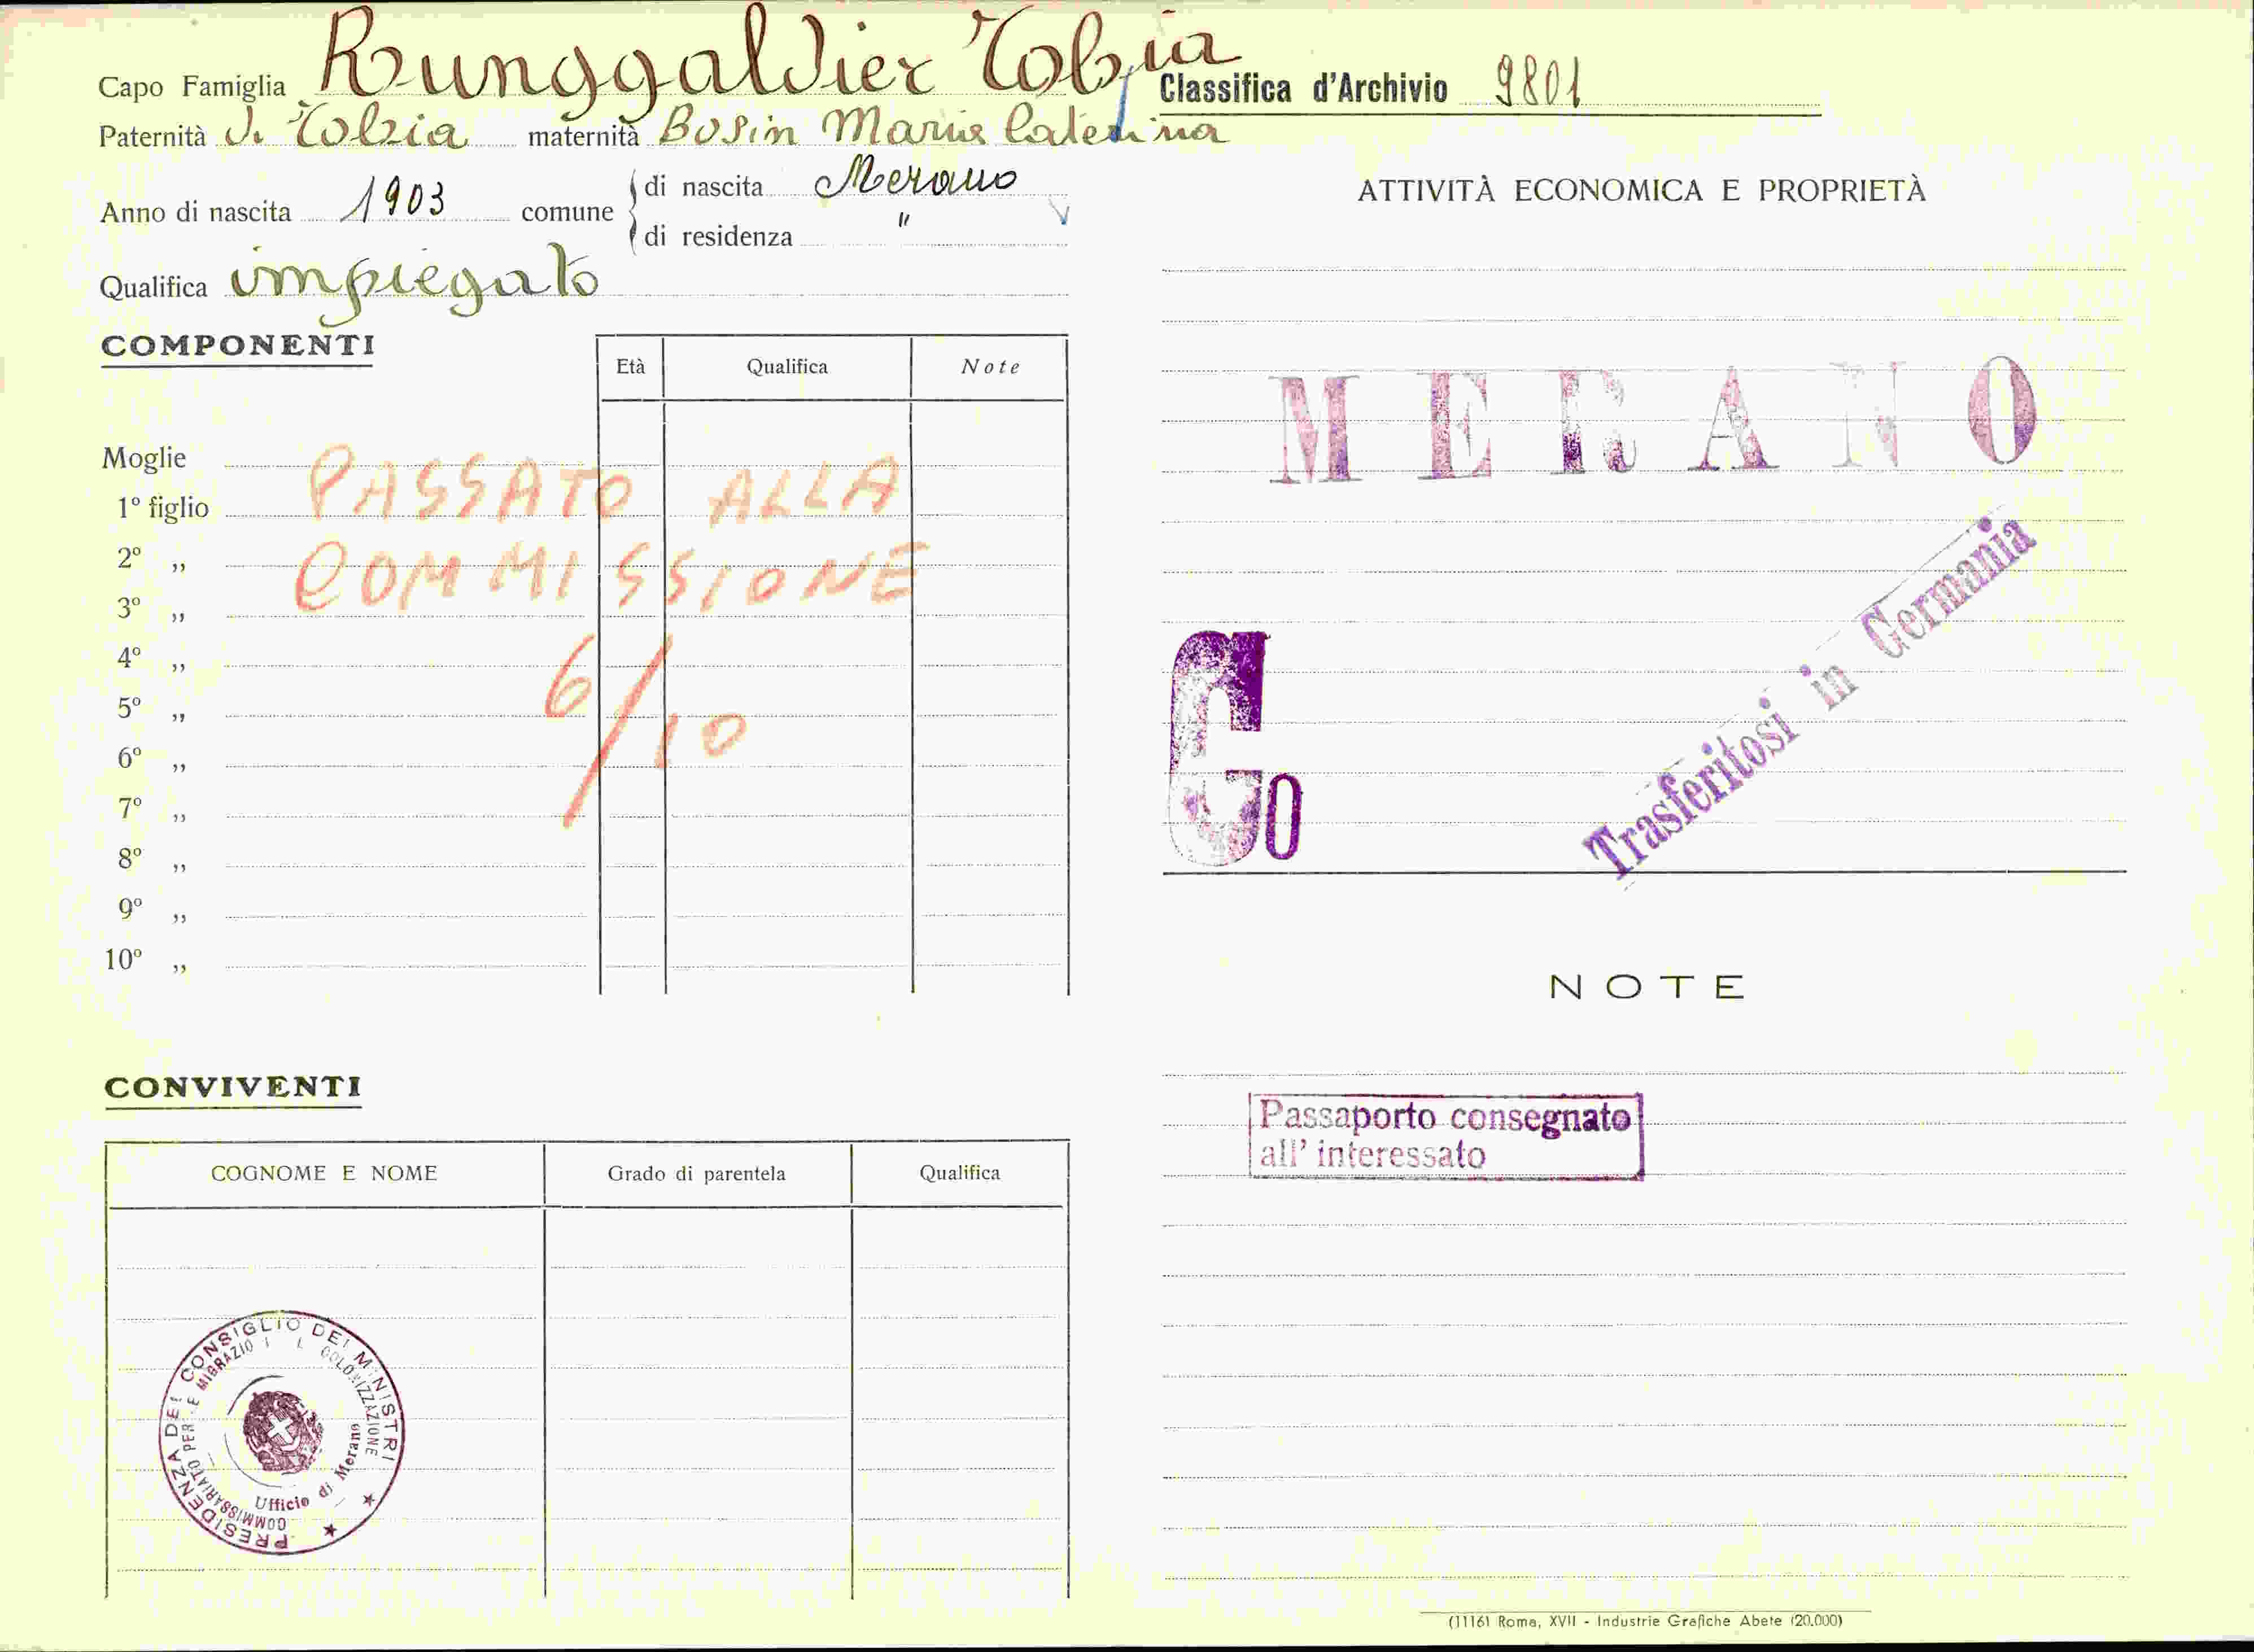 Capo Famiglia Runggaldier Tobia
Paternità di Tobia maternità Bosin Maria Caterina
Anno di nascita 1903 comune di nascita Merano
di residenza "
Qualifica impiegato
COMPONENTI
Età Qualifica Note
Moglie
1º figlio
2º „
3º „
4º „
5º „
6º „
7º „
8º „
9º „
10º „
PASSATO ALLA
COMMISSIONE
6/10
CONVIVENTI
COGNOME E NOME Grado di parentela Qualifica
PRESIDENZA DEL CONSIGLIO DEI MINISTRI
COMMISSARIATO PER LE MIGRAZIONI COLONIZZAZIONE
Ufficio di Merano
Classifica d'Archivio 9801
ATTIVITÀ ECONOMICA E PROPRIETÀ
MERANO
Trasferitosi in Germania
Go
NOTE
Passaporto consegnato
all' interessato
(1116) Roma, XVII - Industrie Grafiche Abete (20.000)